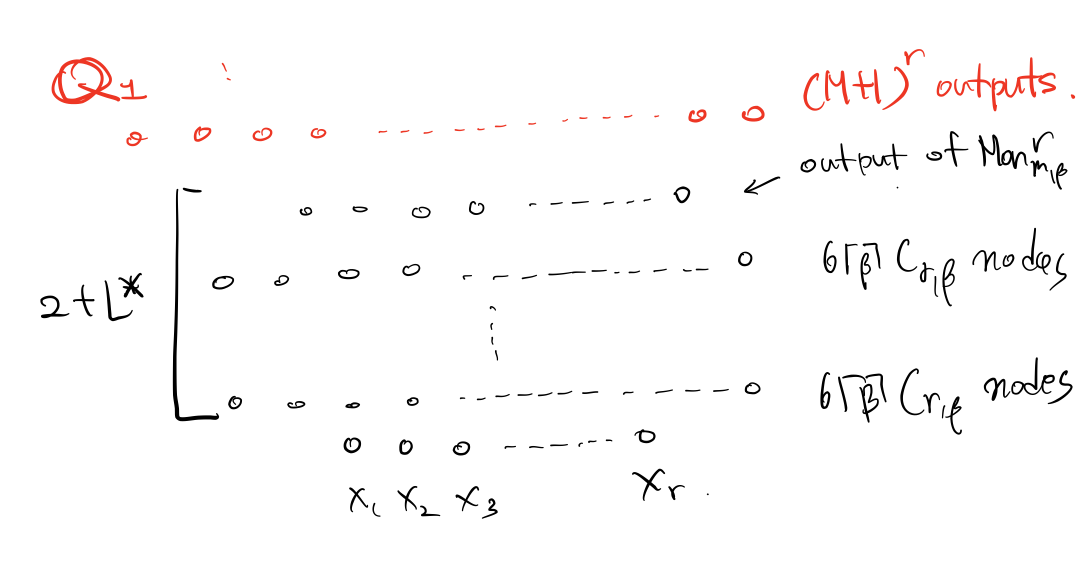 Q1
(M+1)^r outputs.
output of Mon^r_{m,β}
6⌈β⌉ C_{r,β} nodes
2+L*
6⌈β⌉ C_{r,β} nodes
x₁ x₂ x₃ x_r